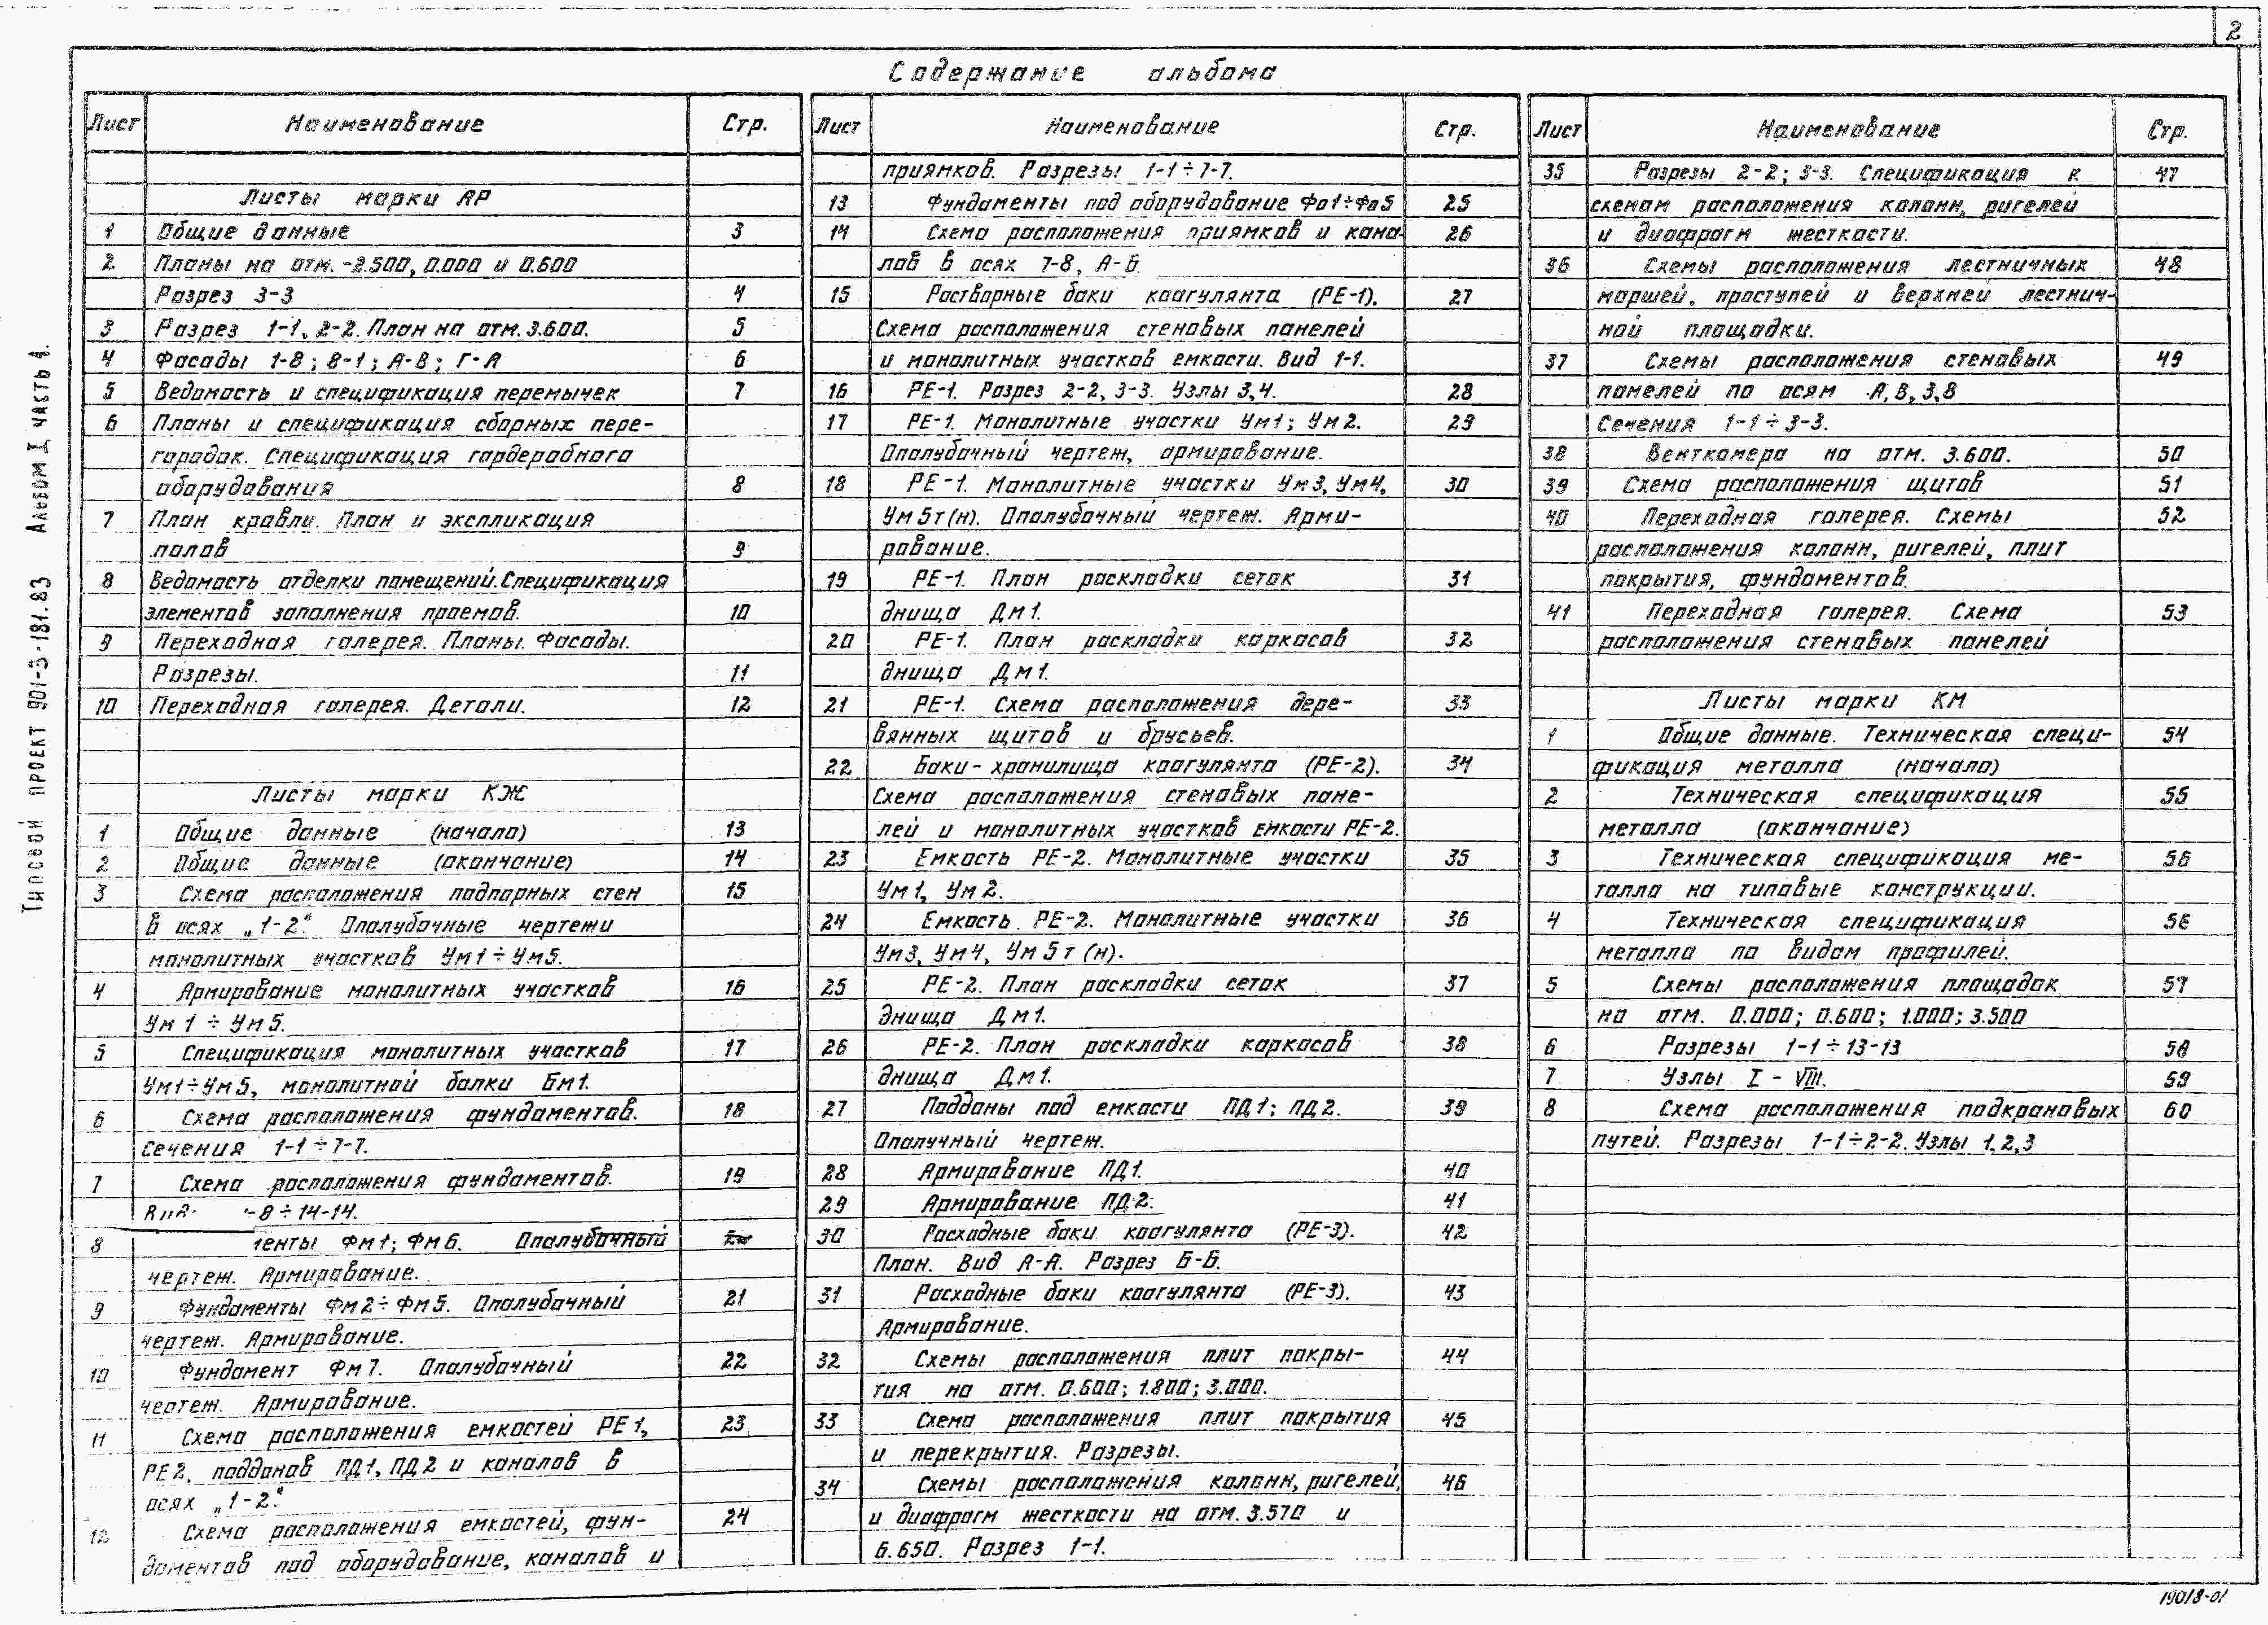 2
Содержание альбома
Типовой проект 901-3-181.83 Альбом I часть 1.
Лист Наименование Стр.
Листы марки АР
1 Общие данные 3
2 Планы на отм. -2.500, 0.000 и 0.600
Разрез 3-3 4
3 Разрез 1-1, 2-2. План на отм. 3.600. 5
4 Фасады 1-8; 8-1; А-В; Г-А 6
5 Ведомость и спецификация перемычек 7
6 Планы и спецификация сборных пере-
городок. Спецификация гардеробного
оборудования 8
7 План кровли. План и экспликация
полов 9
8 Ведомость отделки помещений. Спецификация
элементов заполнения проемов. 10
9 Переходная галерея. Планы. Фасады.
Разрезы. 11
10 Переходная галерея. Детали. 12
Листы марки КЖ
1 Общие данные (начало) 13
2 Общие данные (окончание) 14
3 Схема расположения подпорных стен 15
в осях „1-2". Опалубочные чертежи
монолитных участков Ум1÷Ум5.
4 Армирование монолитных участков 16
Ум1÷Ум5.
5 Спецификация монолитных участков 17
Ум1÷Ум5, монолитной балки Бм1.
6 Схема расположения фундаментов. 18
Сечения 1-1÷7-7.
7 Схема расположения фундаментов. 19
-8÷14-14.
8 енты Фм1; Фм6. Опалубочный
чертеж. Армирование.
9 Фундаменты Фм2÷Фм5. Опалубочный 21
чертеж. Армирование.
10 Фундамент Фм7. Опалубочный 22
чертеж. Армирование.
11 Схема расположения емкостей РЕ1, 23
РЕ2, поддонов ПД1, ПД2 и каналов в
осях „1-2".
12 Схема расположения емкостей, фун- 24
даментов под оборудование, каналов и
Лист Наименование Стр.
приямков. Разрезы 1-1÷7-7.
13 Фундаменты под оборудование Фо1÷Фо5 25
14 Схема расположения приямков и кана- 26
лов в осях 7-8, А-Б.
15 Растворные баки коагулянта (РЕ-1). 27
Схема расположения стеновых панелей
и монолитных участков емкости. Вид 1-1.
16 РЕ-1. Разрез 2-2, 3-3. Узлы 3,4. 28
17 РЕ-1. Монолитные участки Ум1; Ум2. 29
Опалубочный чертеж, армирование.
18 РЕ-1. Монолитные участки Ум3, Ум4, 30
Ум5т(н). Опалубочный чертеж. Арми-
рование.
19 РЕ-1. План раскладки сеток 31
днища Дм1.
20 РЕ-1. План раскладки каркасов 32
днища Дм1.
21 РЕ-1. Схема расположения дере- 33
вянных щитов и брусьев.
22 Баки-хранилища коагулянта (РЕ-2). 34
Схема расположения стеновых пане-
лей и монолитных участков емкости РЕ-2.
23 Емкость РЕ-2. Монолитные участки 35
Ум1, Ум2.
24 Емкость РЕ-2. Монолитные участки 36
Ум3, Ум4, Ум5т(н).
25 РЕ-2. План раскладки сеток 37
днища Дм1.
26 РЕ-2. План раскладки каркасов 38
днища Дм1.
27 Поддоны под емкости ПД1; ПД2. 39
Опалучный чертеж.
28 Армирование ПД1. 40
29 Армирование ПД2. 41
30 Расходные баки коагулянта (РЕ-3). 42
План. Вид А-А. Разрез Б-Б.
31 Расходные баки коагулянта (РЕ-3). 43
Армирование.
32 Схемы расположения плит покры- 44
тия на отм. 0.600; 1.800; 3.000.
33 Схема расположения плит покрытия 45
и перекрытия. Разрезы.
34 Схемы расположения колонн, ригелей, 46
и диафрагм жесткости на отм. 3.570 и
6.650. Разрез 1-1.
Лист Наименование Стр.
35 Разрезы 2-2; 3-3. Спецификация к 47
схемам расположения колонн, ригелей
и диафрагм жесткости.
36 Схемы расположения лестничных 48
маршей, проступей и верхней лестнич-
ной площадки.
37 Схемы расположения стеновых 49
панелей по осям А, В, 3, 8
Сечения 1-1÷3-3.
38 Венткамера на отм. 3.600. 50
39 Схема расположения щитов 51
40 Переходная галерея. Схемы 52
расположения колонн, ригелей, плит
покрытия, фундаментов.
41 Переходная галерея. Схема 53
расположения стеновых панелей
Листы марки КМ
1 Общие данные. Техническая специ- 54
фикация металла (начало)
2 Техническая спецификация 55
металла (окончание)
3 Техническая спецификация ме- 56
талла на типовые конструкции.
4 Техническая спецификация 56
металла по видам профилей.
5 Схемы расположения площадок 57
на отм. 0.000; 0.600; 1.000; 3.500
6 Разрезы 1-1÷13-13 58
7 Узлы I - VIII. 59
8 Схема расположения подкрановых 60
путей. Разрезы 1-1÷2-2. Узлы 1,2,3
19018-01